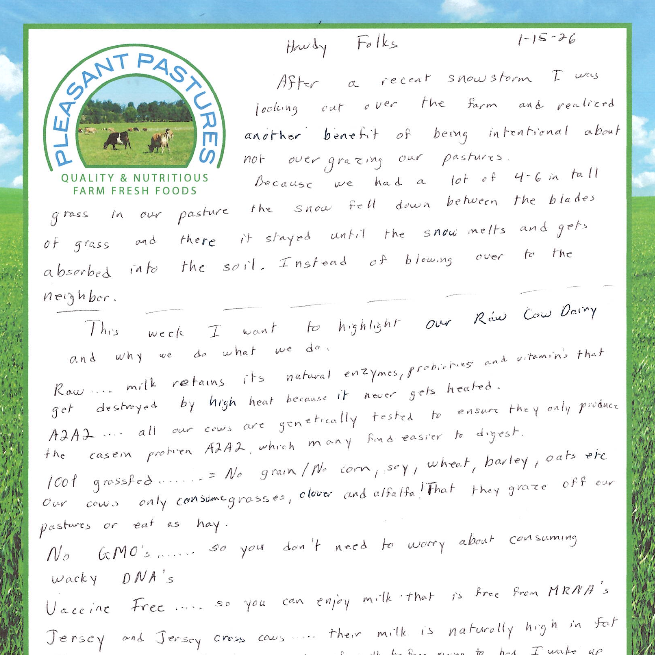 PLEASANT PASTURES
QUALITY & NUTRITIOUS
FARM FRESH FOODS
Howdy Folks 1-15-26
After a recent snowstorm I was
looking out over the farm and realized
another benefit of being intentional about
not over grazing our pastures.
Because we had a lot of 4-6 in tall
grass in our pasture the snow fell down between the blades
of grass and there it stayed until the snow melts and gets
absorbed into the soil. Instead of blowing over to the
neighbor.
This week I want to highlight our Raw Cow Dairy
and why we do what we do.
Raw .... milk retains its natural enzymes, and vitamins that
get destroyed by high heat because it never gets heated.
A2A2 .... all our cows are genetically tested to ensure they only produce
the casein protien A2A2, which many find easier to digest.
100% grassfed ....... = No grain/No corn, soy, wheat, barley, oats etc
Our cows only consume grasses, clover and alfalfa! That they graze off our
pastures or eat as hay.
No GMO's ...... so you don't need to worry about consuming
wacky DNA's
Vaccine Free ..... so you can enjoy milk that is free from MRNA's
Jersey and Jersey cross cows .... their milk is naturally high in fat